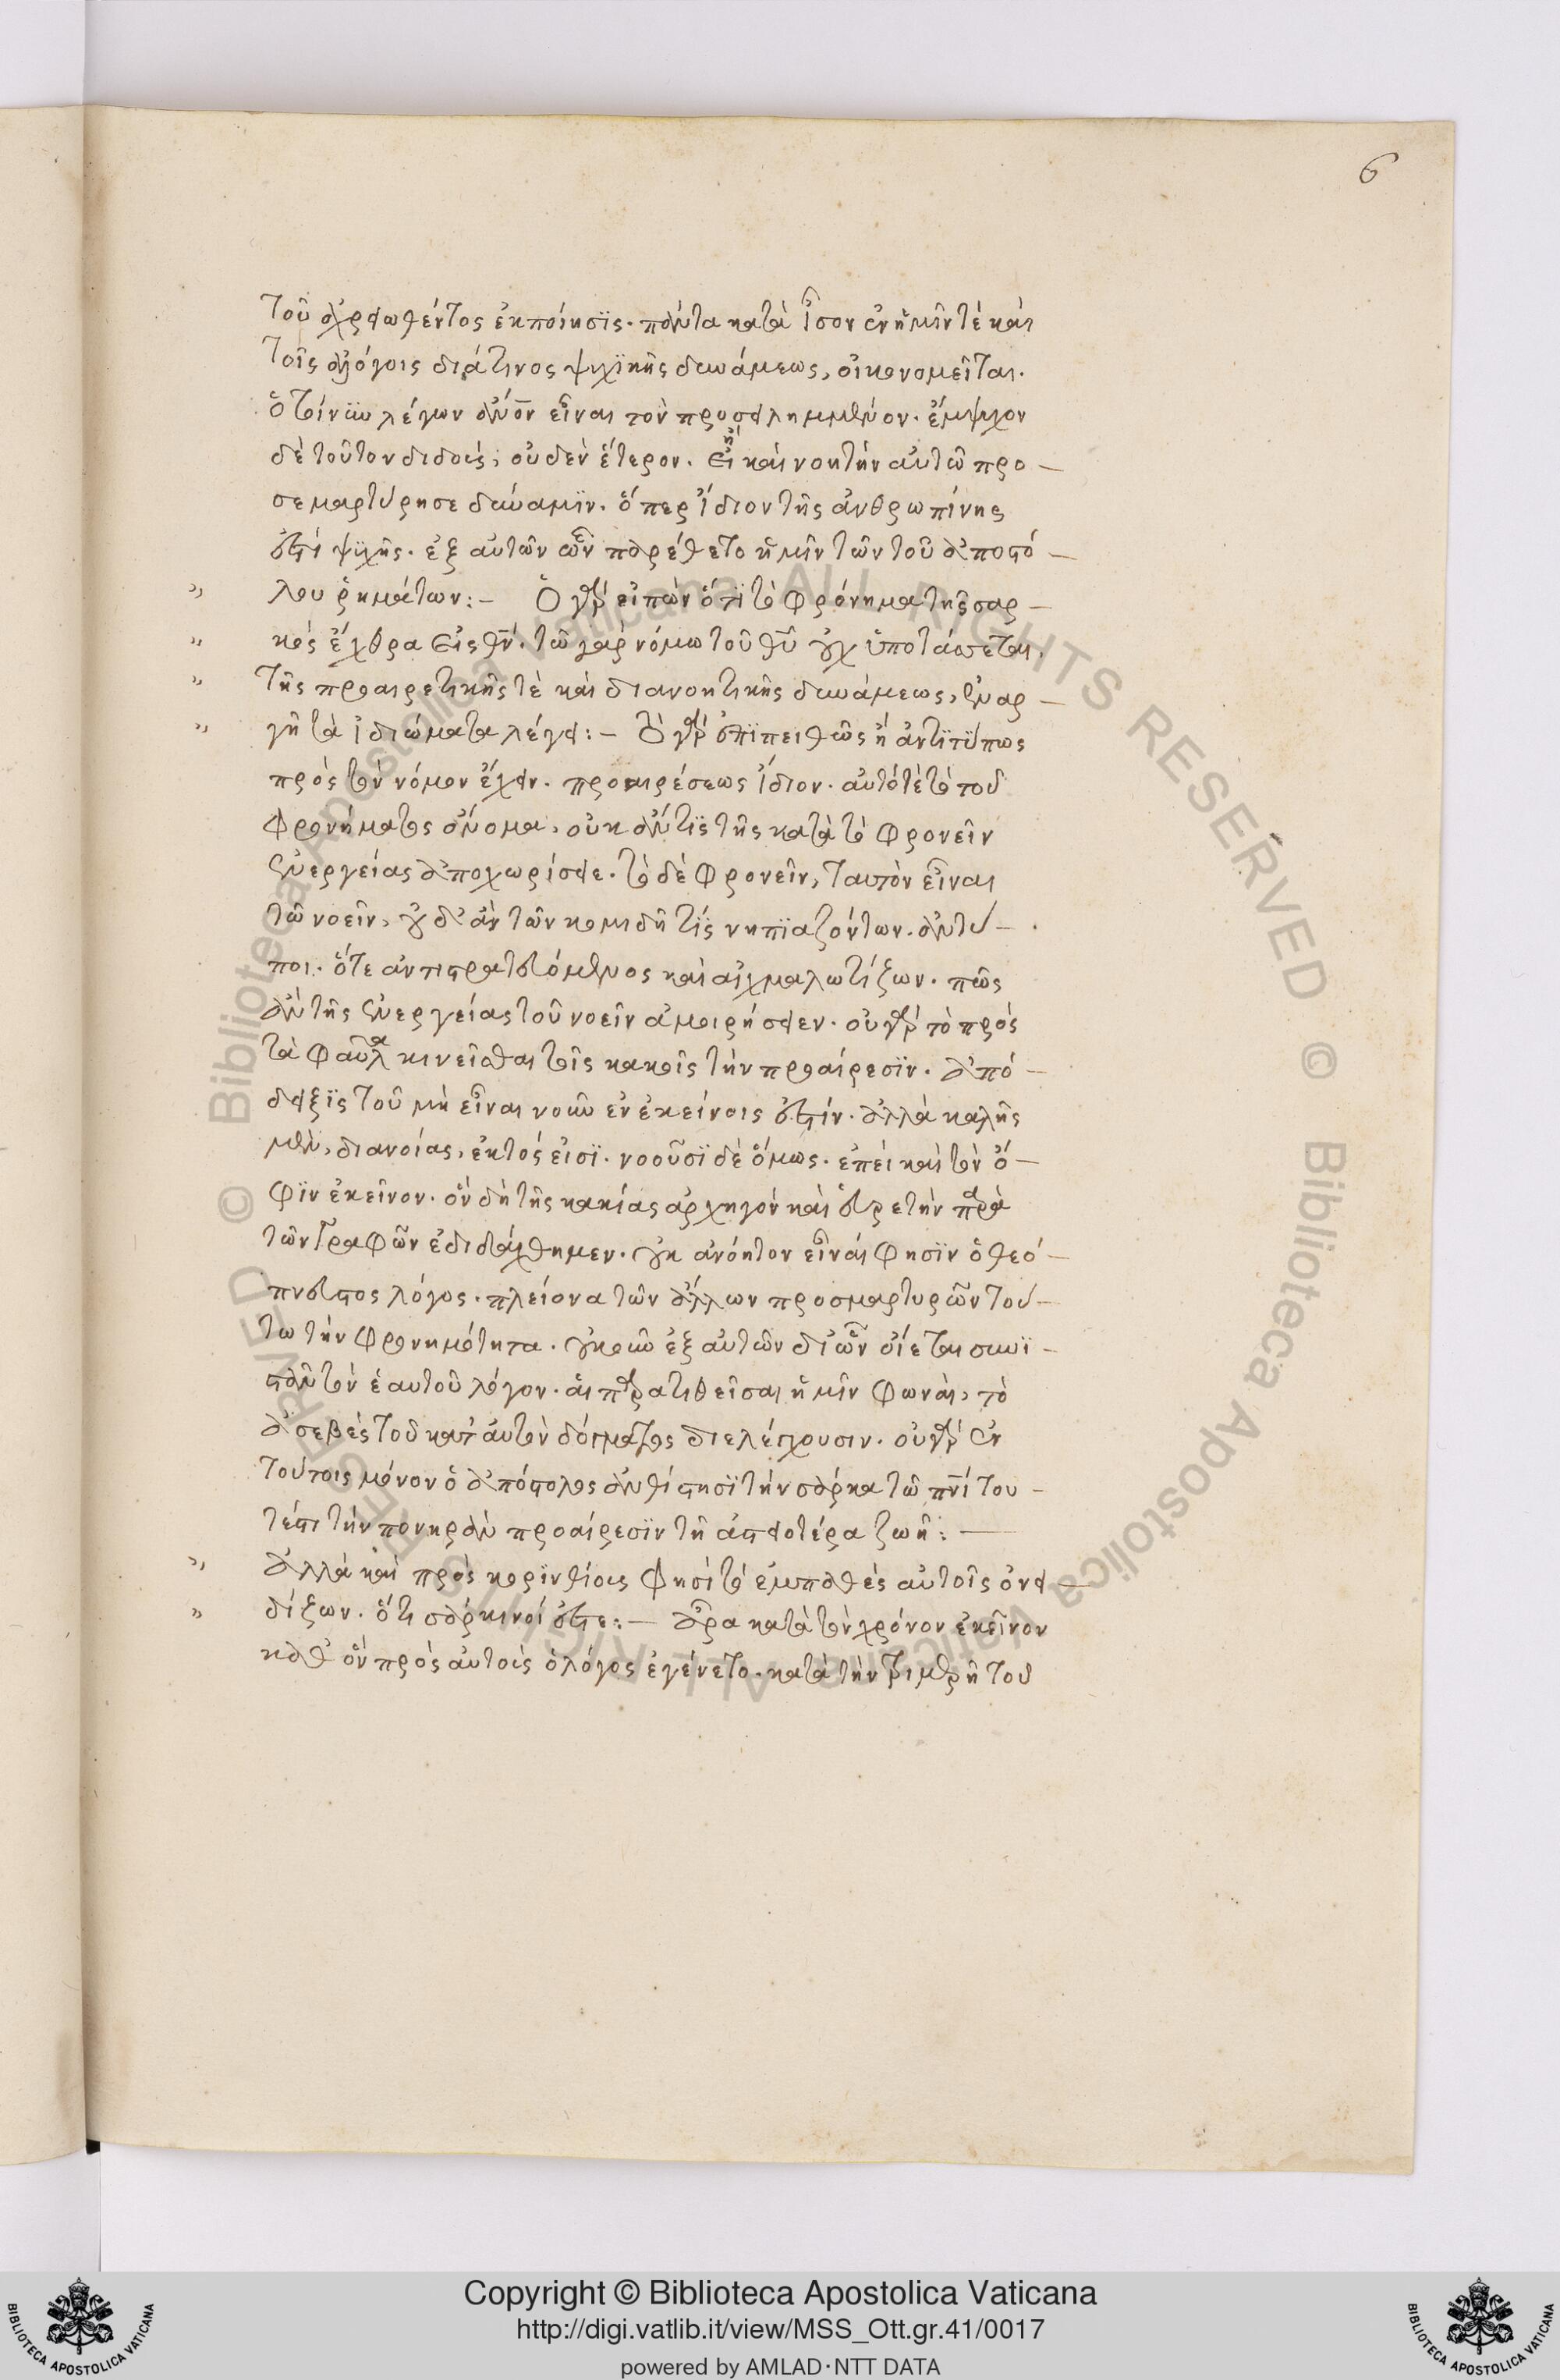 6
τοῦ ἀχρειωθέντος ἐκποίησϊς· πάντα κατὰ ἶσον ἐν ἡμῖν τὲ καὶ
τοῖς ἀλόγοις διά τινος ψυχϊκῆς δυνάμεως, οἰκονομεῖται.
ὁ τοίνυν λέγων ἀνον εἶναι τὸν προσειλημμένον. ἔμψυχον
δὲ τοῦτον διδοὺς, οὐδὲν ἕτερον. εἰ ἢ καὶ νοητὴν αὐτῶ προ-
σεμαρτύρησε δύναμϊν. ὅπερ ἴδιον τῆς ἀνθρωπίνης
ἐστὶ ψϋχῆς. ἐξ αὐτῶν ὧν παρέθετο ἡμῖν τῶν τοῦ ἀποστό-
λου ῥημάτων:- Ὁ γὰρ εἰπὼν ὅτϊ τὸ φρόνημα τῆς σαρ-
κὸς ἔχθρα εἰς θν. τῶ γὰρ νόμω τοῦ θυ οὐχ ὑποτάσσεται,
τῆς προαιρετικῆς τὲ καὶ διανοητικῆς δυνάμεως, ἐναρ-
γῆ τὰ ἰδιώματα λέγει:- Τὸ γὰρ ἐπϊπειθῶς ἢ ἀντϊτύπως
πρὸς τὸν νόμον ἔχειν. προαιρέσεως ἴδιον. αὐτό τὲ τὸ τοῦ
φρονήματος ὄνομα, οὐκ ἄν τϊς τῆς κατὰ τὸ φρονεῖν
ἐνεργείας ἀποχωρίσειε. τὸ δὲ φρονεῖν, ταυτὸν εἶναι
τῶ νοεῖν, οὐδ' ἂν τῶν κομιδῆ τϊς νηπϊαζόντων. ἀντεί-
ποι. ὅτε ἀντιστρατευόμενος καὶ αἰχμαλωτίζων. πῶς
ἂν τῆς ἐνεργείας τοῦ νοεῖν ἀμοιρήσειεν. οὐ γὰρ τὸ πρὸς
τὰ φαῦλα κινεῖσθαι τοῖς κακοῖς τὴν προαίρεσϊν. ἀπό-
δειξϊς τοῦ μὴ εἶναι νοῦν ἐν ἐκείνοις ἐστίν. ἀλλὰ καλῆς
μὲν, διανοίας, ἐκτός εἰσϊ. νοοῦσϊ δὲ ὅμως. ἐπεὶ καὶ τὸν ὄ-
φϊν ἐκεῖνον. ὃν δὴ τῆς κακίας ἀρχηγὸν καὶ εὑρετὴν παρὰ
τῶν Γραφῶν ἐδιδάχθημεν. οὐκ ἀνόητον εἶναί φησϊν ὁ θεό-
πνευστος λόγος. πλείονα τῶν ἄλλων προσμαρτυρῶν τού-
τω τὴν φρονημότητα. οὐκοῦν ἐξ αὐτῶν δι' ὧν οἴεται συνϊ-
στᾶν τὸν ἑαυτοῦ λόγον. αἱ παρατιθεῖσαι ἡμῖν φωναὶ, τὸ
ἀσεβὲς τοῦ κατ' αὐτὸν δόγματος διελέγχουσιν. οὐ γὰρ ἐν
τούτοις μόνον ὁ ἀπόστολος ἀνθίστησϊ τὴν σάρκα τῶ πνί του-
τέστι τὴν πονηρὰν προαίρεσϊν τῆ ἀστειοτέρα ζωῆ:-
Ἀλλὰ καὶ πρὸς κορϊνθίοις φησὶ τὸ ἐμπαθὲς αὐτοῖς ὀνει-
δίζων. ὅτι σάρκινοί ἐστε:- ἆρα κατὰ τὸν χρόνον ἐκεῖνον
καθ' ὃν πρὸς αὐτοὺς ὁ λόγος ἐγένετο. κατὰ τὴν τριμερῆ τοῦ
Copyright © Biblioteca Apostolica Vaticana
http://digi.vatlib.it/view/MSS_Ott.gr.41/0017
powered by AMLAD·NTT DATA
BIBLIOTECA APOSTOLICA VATICANA
BIBLIOTECA APOSTOLICA VATICANA
© Biblioteca Apostolica Vaticana ALL RIGHTS RESERVED © Biblioteca Apostolica Vaticana ALL RIGHTS RESERVED